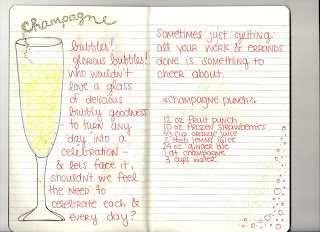 Champagne
bubbles!
glorious bubbles!
who wouldn't
love a glass
of delicious
bubbly goodness
to turn any
day into a
celebration -
& let's face it,
shouldn't we feel
the need to
celebrate each &
every day?
Sometimes just getting
all your work & errands
done is something to
cheer about.
*champagne punch*
12 oz fruit punch
10 oz frozen strawberries
3/3 cup orange juice
2 tbsp lemon juice
24 oz ginger ale
1 qt champagne
3 cups water